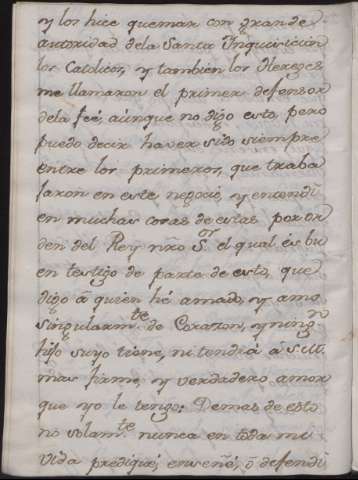 y los hice quemar con grande
autoridad dela Santa Inquisicion
los Catolicos, y tambien los Hereges
me llamaron el primer defensor
dela feé, aúnque no digo esto, pero
puedo decir haver sido siempre
entre los primeros, que traba
jaron en este negocio, y entendi
en muchas cosas de estas por or
den del Rey nrõ S.or el qual és bu
en testigo de parte de esto, que
digo â quien hé amado, y amo
singularm.te de Corazon, y ning.n
hijo suyo tiene, ni tendrá á S. M.
mas firme, y verdadero amor
que yo le tengo: Demas de esto
no solam.te nunca en toda mi
vida prediqué, enseñé, ô defendi